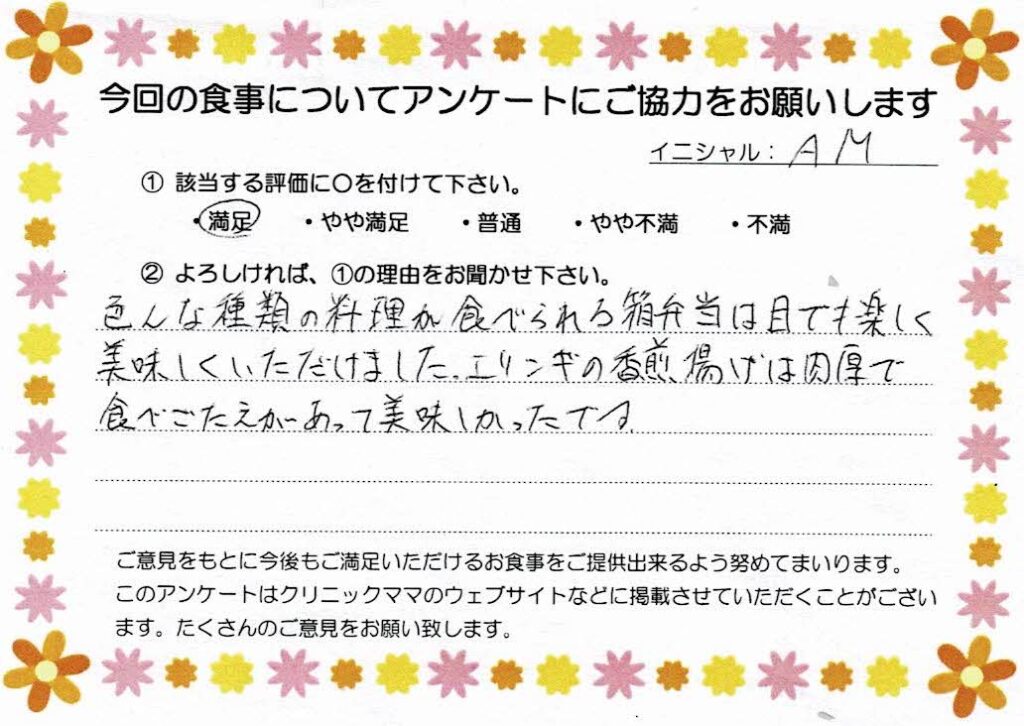 今回の食事についてアンケートにご協力をお願いします
イニシャル： A M
① 該当する評価に〇を付けて下さい。
・満足 ・やや満足 ・普通 ・やや不満 ・不満
② よろしければ、①の理由をお聞かせ下さい。
色んな種類の料理が食べられる箱弁当は目でも楽しく
美味しくいただけました。エリンギの香煎揚げは肉厚で
食べごたえがあって美味しかったです。
ご意見をもとに今後もご満足いただけるお食事をご提供出来るよう努めてまいります。
このアンケートはクリニックママのウェブサイトなどに掲載させていただくことがござい
ます。たくさんのご意見をお願い致します。